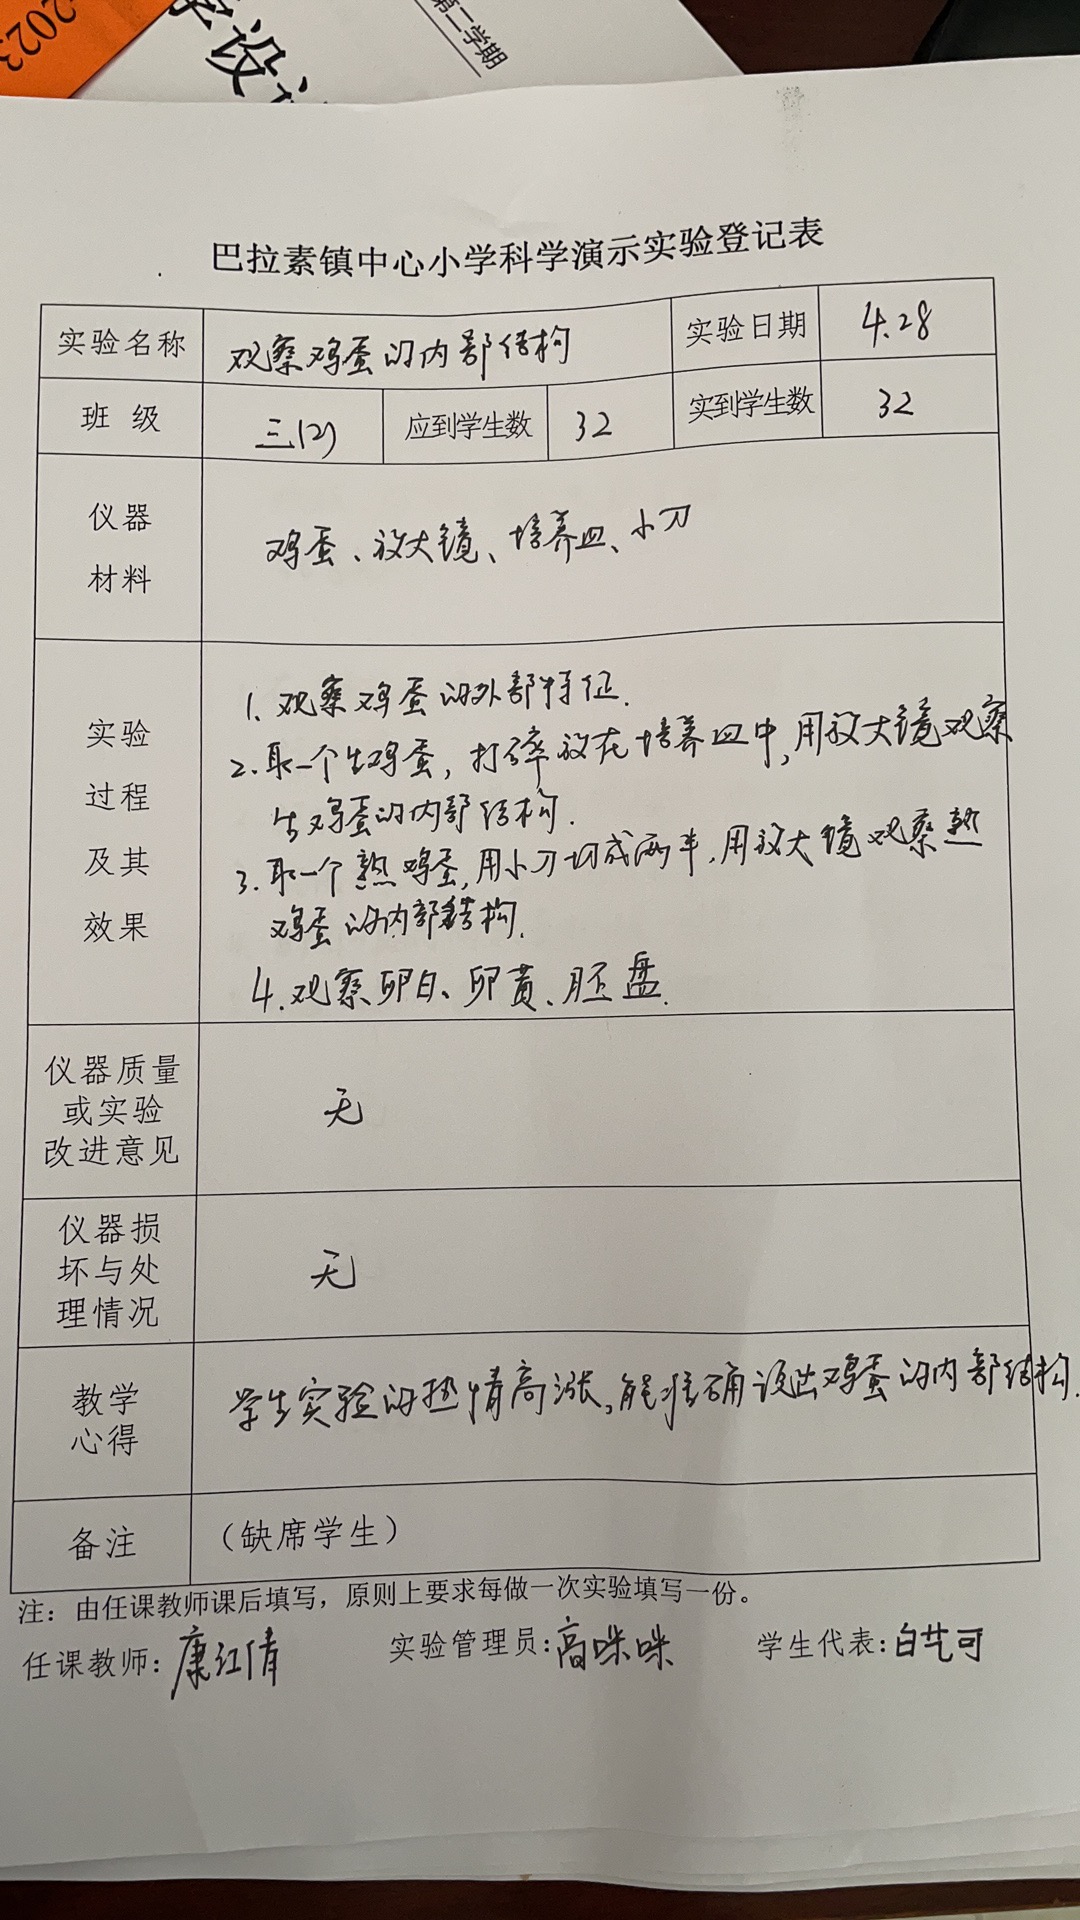 2023
第二学期
巴拉素镇中心小学科学演示实验登记表
实验名称 观察鸡蛋的内部结构 实验日期 4.28
班 级 三(2) 应到学生数 32 实到学生数 32
仪器
材料
鸡蛋、放大镜、培养皿、小刀
实验
过程
及其
效果
1. 观察鸡蛋的外部特征.
2. 取一个生鸡蛋,打碎放在培养皿中,用放大镜观察
生鸡蛋的内部结构.
3. 取一个熟鸡蛋,用小刀切成两半,用放大镜观察熟
鸡蛋的内部结构.
4. 观察卵白、卵黄、胚盘.
仪器质量
或实验
改进意见
无
仪器损
坏与处
理情况
无
教学
心得
学生实验的热情高涨,能准确说出鸡蛋的内部结构.
备注 (缺席学生)
注:由任课教师课后填写,原则上要求每做一次实验填写一份。
任课教师:康红倩 实验管理员:高咪咪 学生代表:白艺可